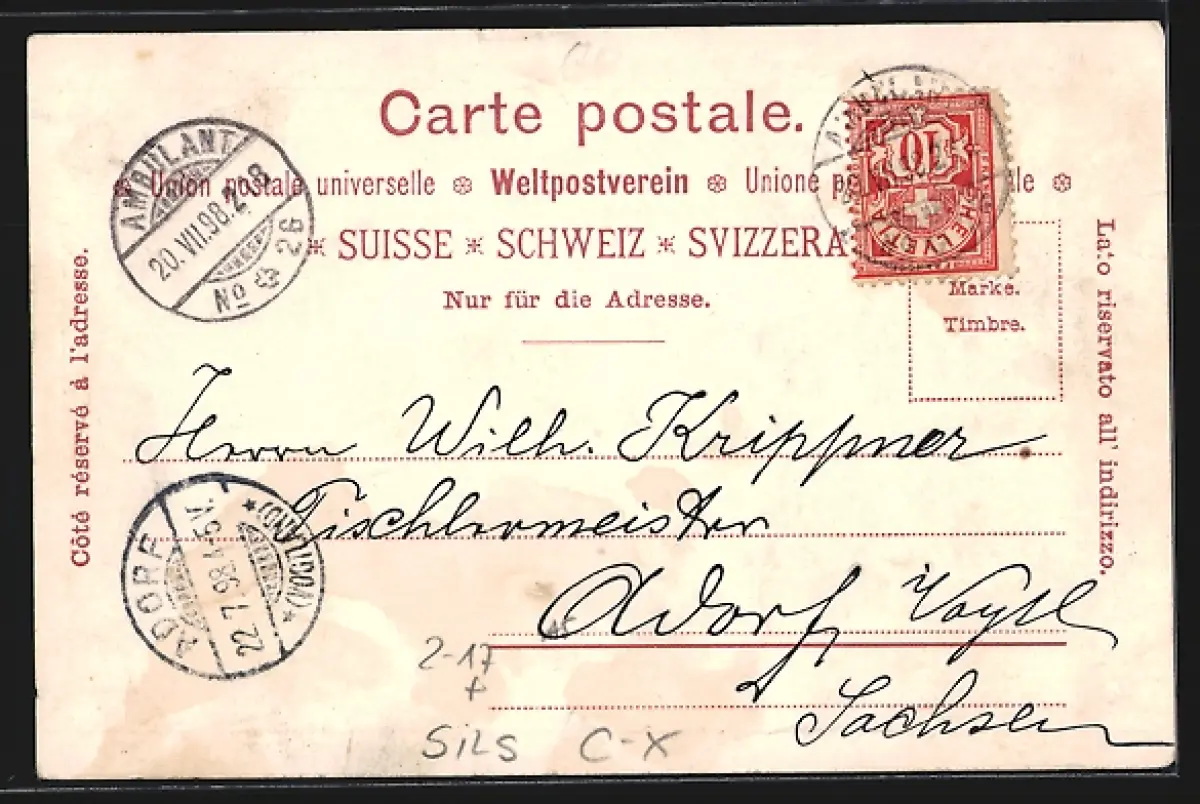 Carte postale.
Union postale universelle Weltpostverein Unione
SUISSE * SCHWEIZ * SVIZZERA
Nur für die Adresse.
Marke.
Timbre.
Côté réservé à l'adresse.
Lato riservato all' indirizzo.
AMBULANT
20.VII.98.
No 26
10
HELVETIA
Herrn Wilh. Krippner
Tischlermeister
Adorf Vogtl
Sachsen
ADORF
22.7.98.
(VOGTLAND)
2-17
+
SILS C-X